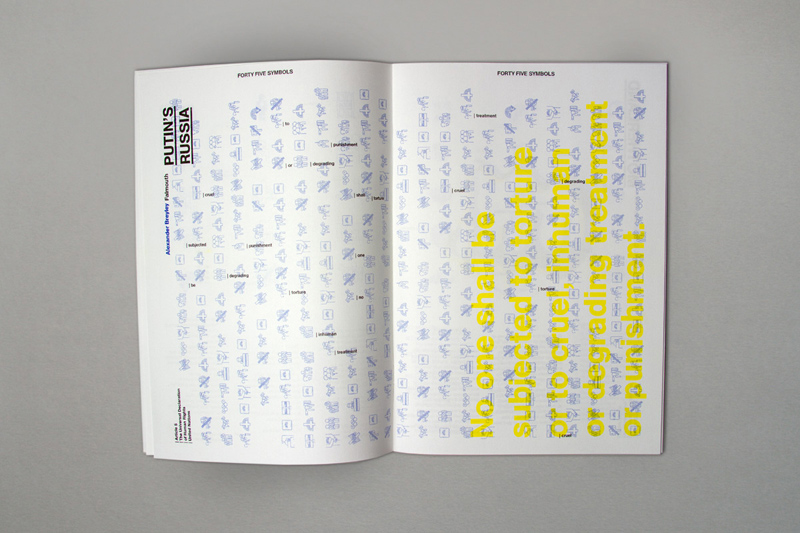 FORTY FIVE SYMBOLS
PUTIN'S
RUSSIA
Alexander Breyley Falmouth
The Universal Declaration
of Human Rights
United Nations
| to
| punishment
| or
| degrading
| cruel
| shall
| torture
| subjected
| punishment
| one
| degrading
| be
| torture
| no
| inhuman
| treatment
FORTY FIVE SYMBOLS
| treatment
| degrading
| cruel
| torture
| cruel
No one shall be
subjected to torture
or to cruel, inhuman
or degrading treatment
or punishment.